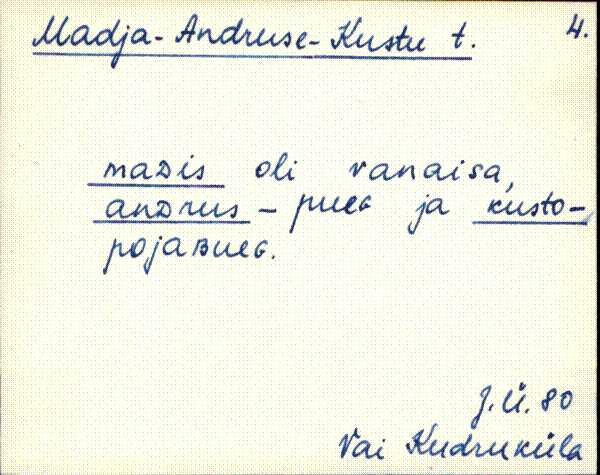 Madja-Andruse-Kustu t. 4.
maᴅis oli vanaisa,
anᴅrus – pueɢ ja kusto-
pojaʙueɢ.
J. Ü. 80
Vai Kudruküla